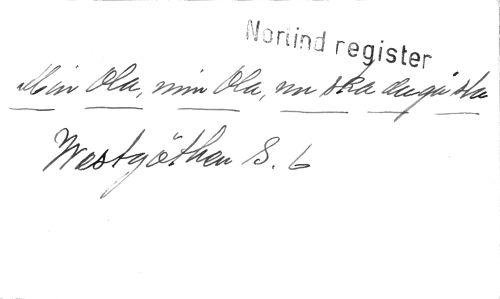 Norlind register
Min Ola, min Ola, nu ska du gå ska
Westgöthen S. 6